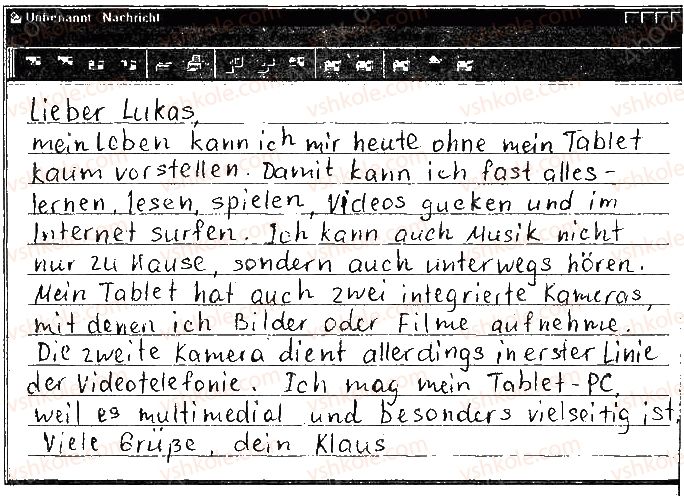 Unbenannt - Nachricht
Lieber Lukas,
mein Leben kann ich mir heute ohne mein Tablet
kaum vorstellen. Damit kann ich fast alles -
lernen, lesen, spielen, Videos gucken und im
Internet surfen. Ich kann auch Musik nicht
nur zu Hause, sondern auch unterwegs hören.
Mein Tablet hat auch zwei integrierte Kameras,
mit denen ich Bilder oder Filme aufnehme.
Die zweite Kamera dient allerdings in erster Linie
der Videotelefonie. Ich mag mein Tablet-PC,
weil es multimedial und besonders vielseitig ist.
Viele Grüße, dein Klaus